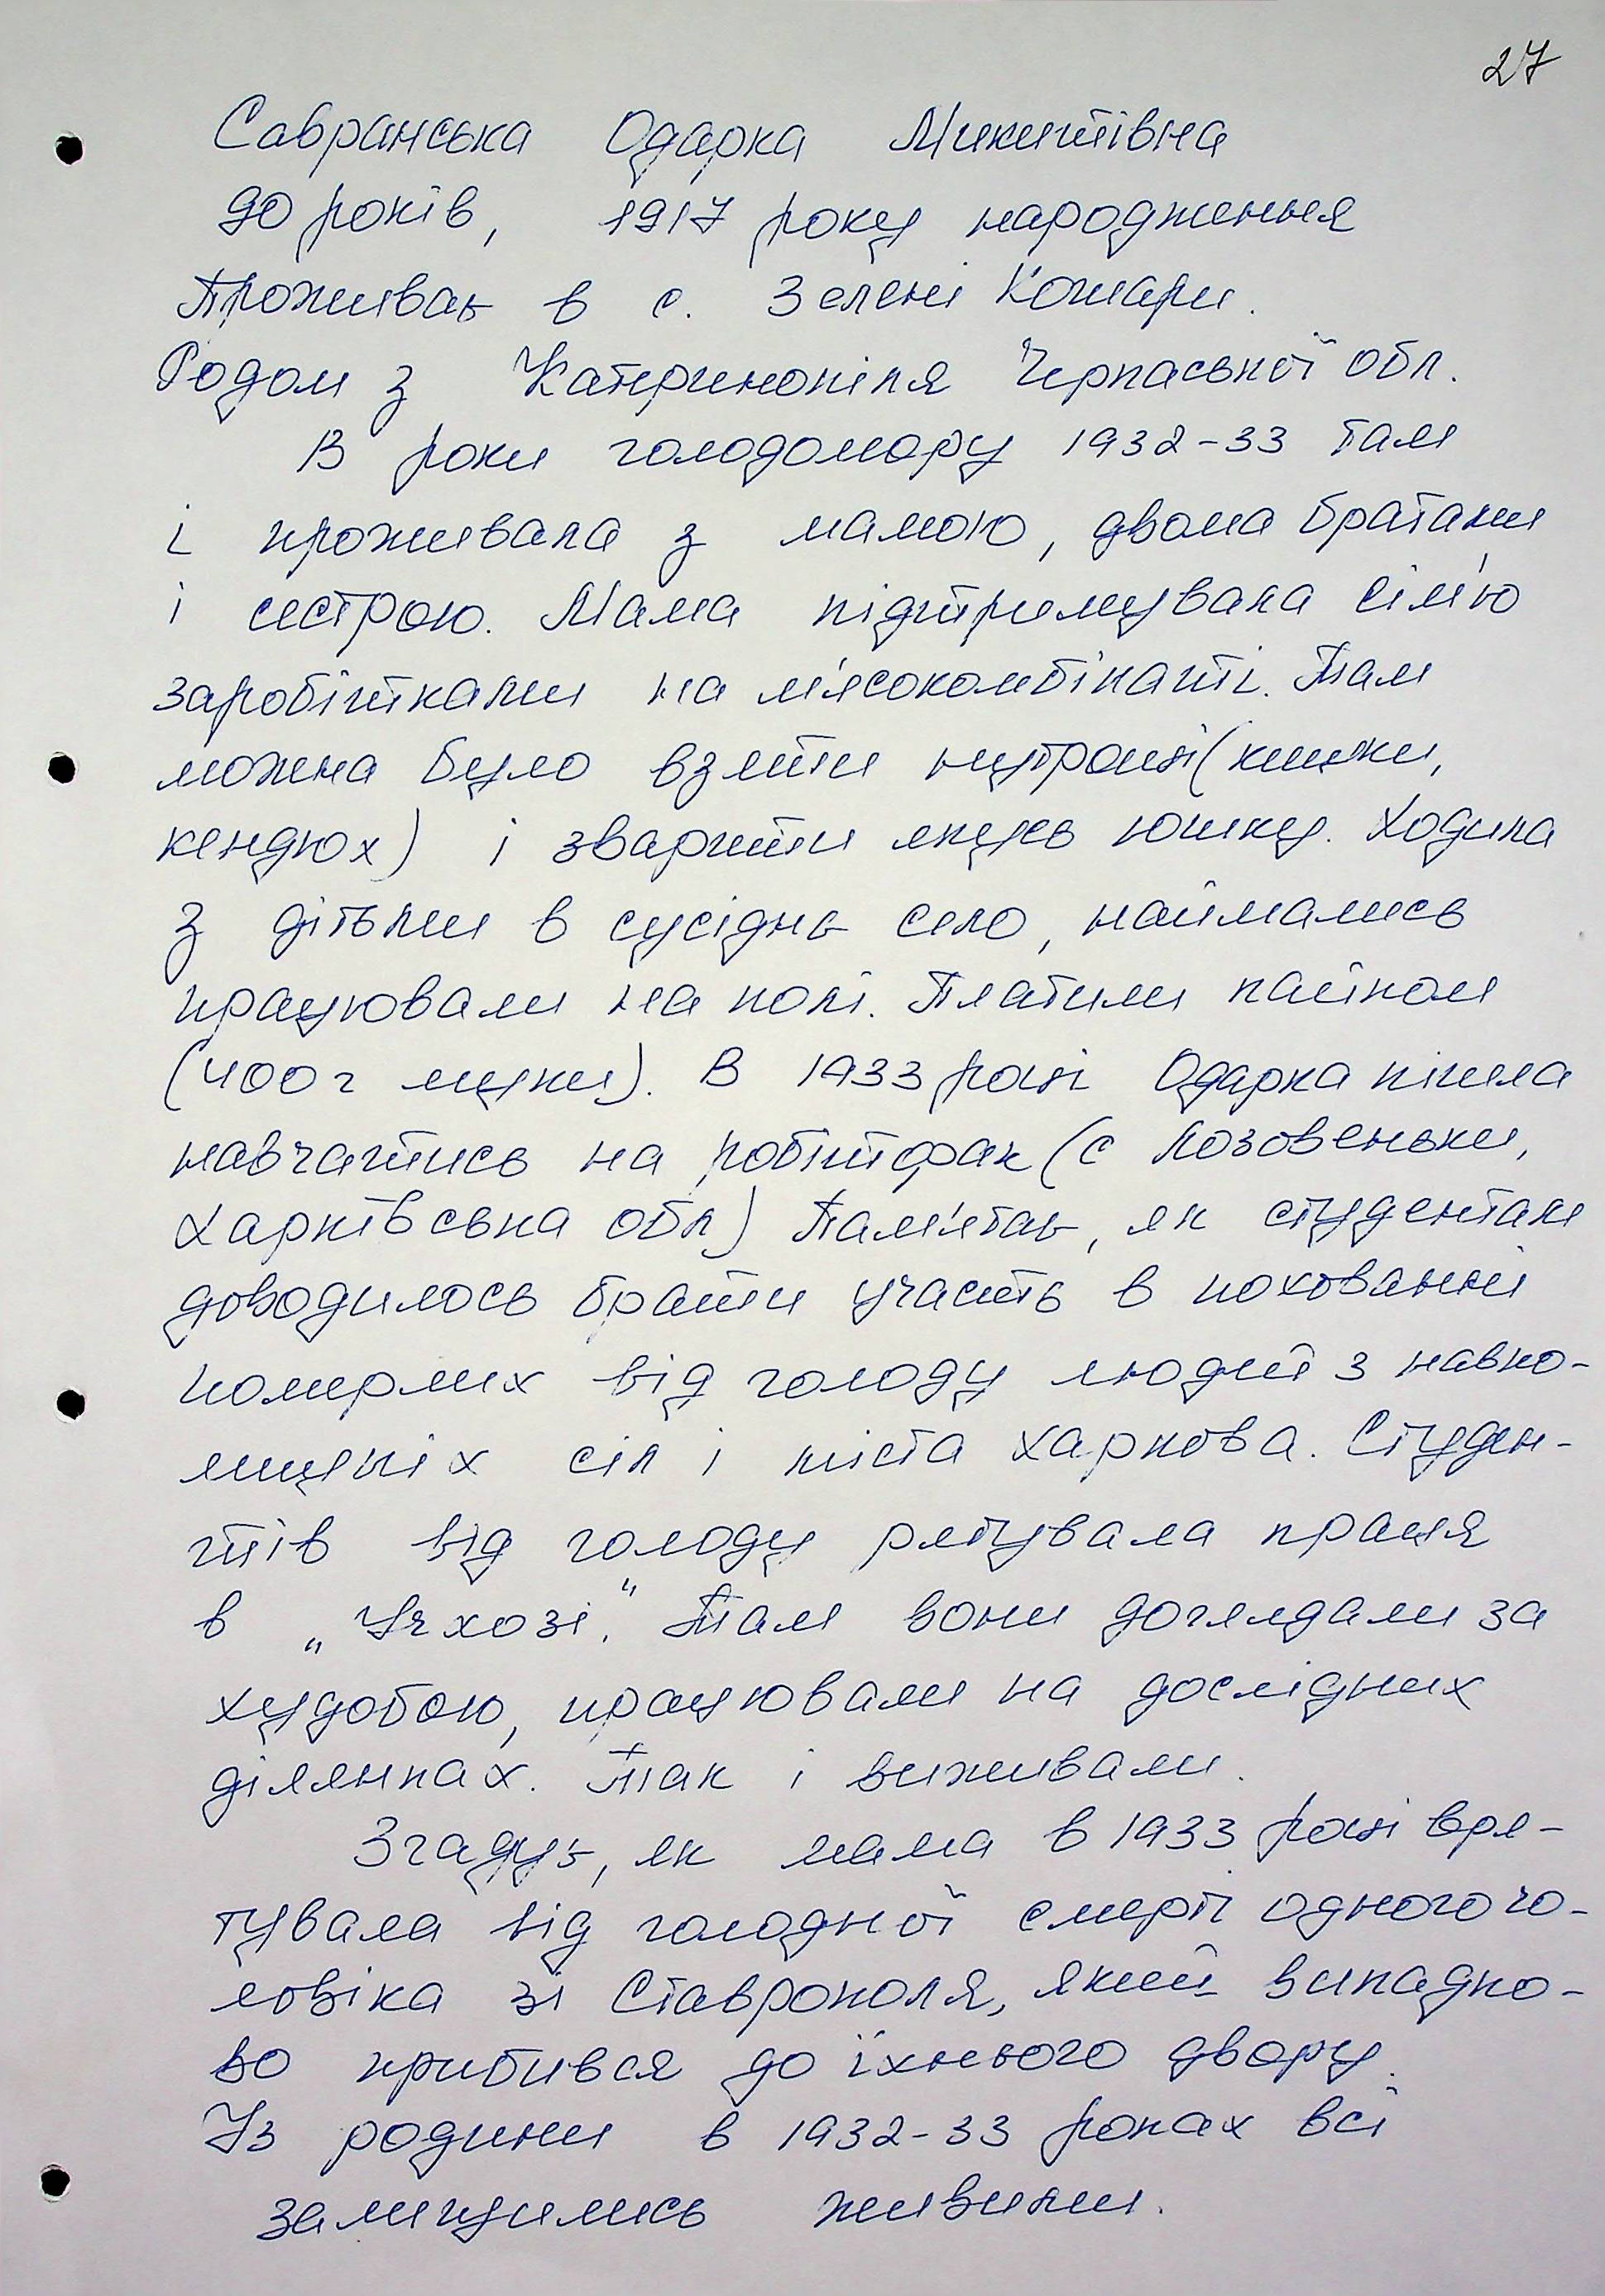 27
Савранська Одарка Микитівна
90 років, 1917 року народження
Проживає в с. Зелені Кошари.
Родом з Катеринопіля Черкаської обл.
В роки голодомору 1932-33 там
і проживала з мамою, двома братами
і сестрою. Мама підтримувала сім'ю
заробітками на м'ясокомбінаті. Там
можна було взяти нутрощі (кишки,
кендюх) і зварити якусь юшку. Ходила
з дітьми в сусіднє село, наймались
працювали на полі. Платили пайком
(400 г муки). В 1933 році Одарка пішла
навчатись на робітфак (с Лозовеньки,
Харківська обл) Пам'ятає, як студентам
доводилось брати участь в похованні
померлих від голоду людей з навко-
лишніх сіл і міста Харкова. Студен-
тів від голоду рятувала праця
в „Учхозі". Там вони доглядали за
худобою, працювали на дослідних
ділянках. Так і виживали.
Згадує, як мама в 1933 році вря-
тувала від голодної смерті одного чо-
ловіка зі Ставрополя, який випадко-
во прибився до їхнього двору.
Із родини в 1932-33 роках всі
залишились живими.